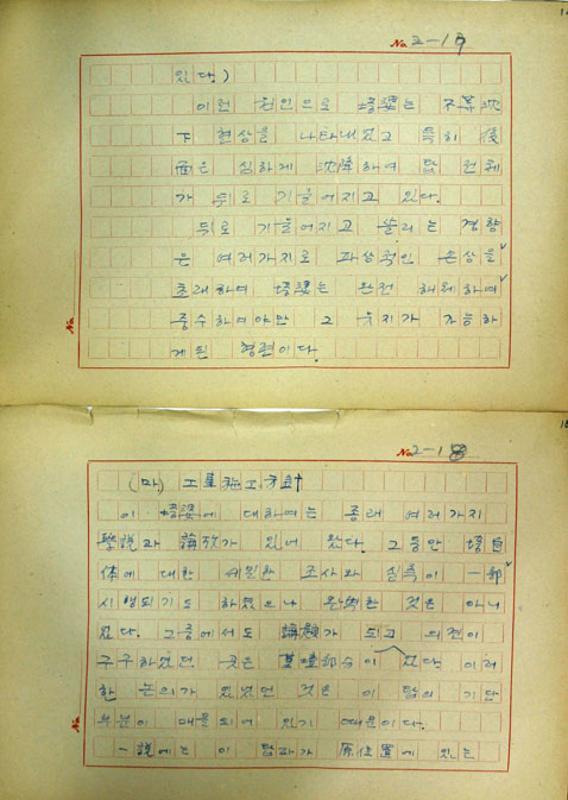 No 2-17
있다.)
이런 원인으로 塔婆는 不等沈
下 현상을 나타내었고 특히 後
面은 심하게 沈降하여 탑 전체
가 뒤로 기울어지고 있다.
뒤로 기울어지고 쏠리는 경향
은 여러가지로 파상적인 손상을
초래하며 塔婆는 완전 해체하여
중수하여야만 그 유지가 가능하
게된 형편이다.
No
No 2-18
(마) 工事施工方針
이 塔婆에 대하여는 종래 여러가지
學說과 論攷가 있어 왔다. 그동안 塔自
体에 대한 세밀한 조사와 실측이 一部
시행되기도 하였으나 완벽한 것은 아니
었다. 그중에서도 論題가 되고 의견이
구구하였던 곳은 基壇部分이 었다. 이러
한 논의가 있었던 것은 이 탑의 기단
부분이 매몰되어 있기 때문이다.
一說에는 이 탑파가 原位置에 있는
No